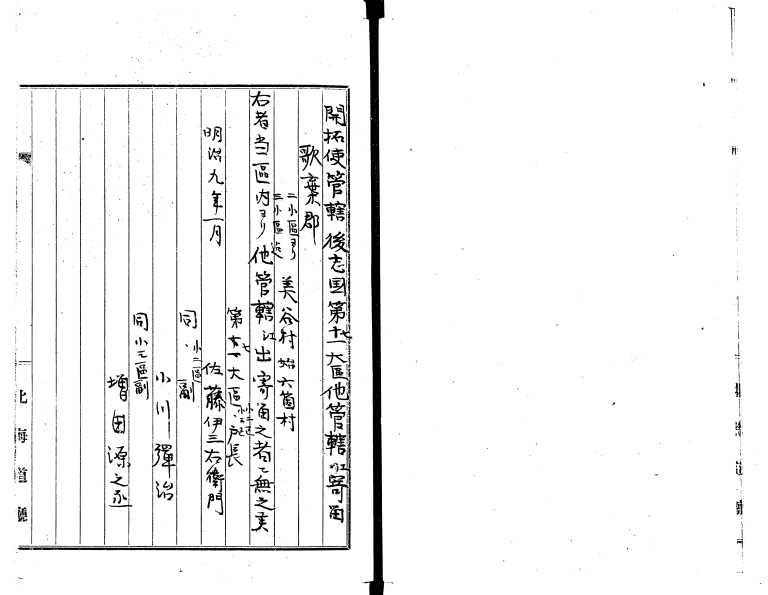 開拓使管轄後志国第十七大区他管轄江寄留
歌棄郡
二小區ヨリ
三小區迄
美谷村始六箇村
右者当區内ヨリ他管轄江出寄留之者無之
明治九年一月
第十七大區
戸長
佐藤伊三右衛門
同小二區副
小川彈治
同小三區副
増田源之丞
北海道廳